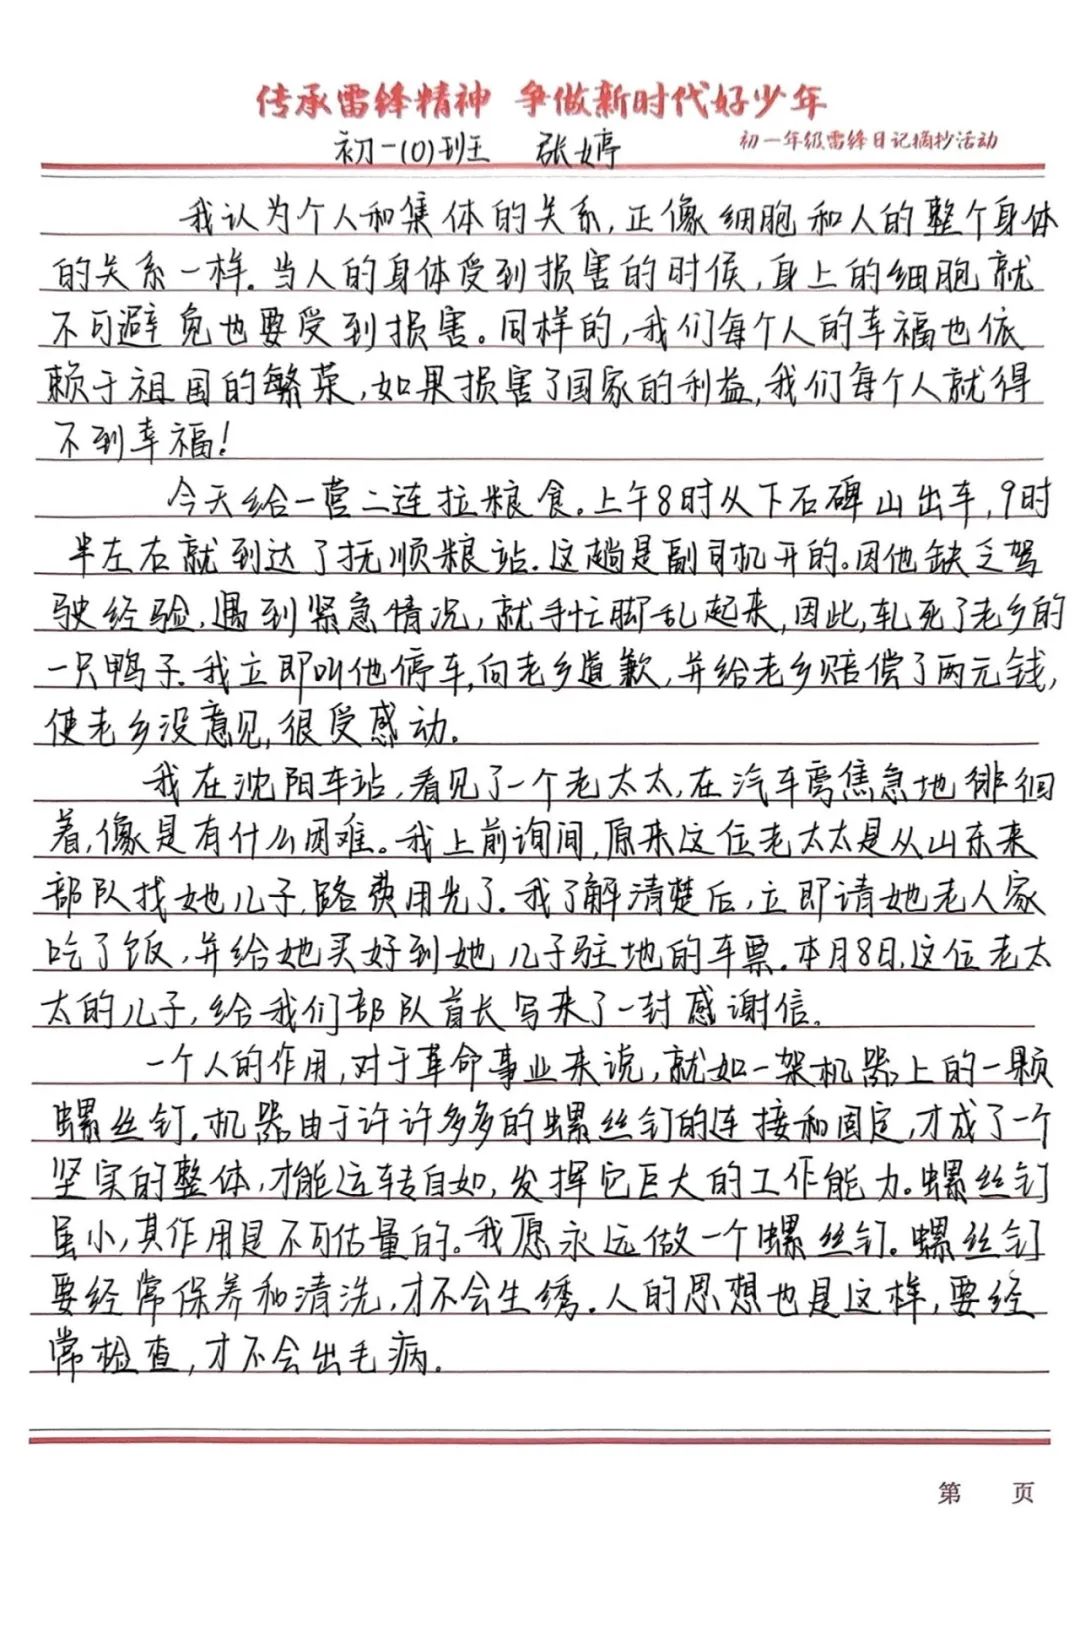 传承雷锋精神 争做新时代好少年
初一(10)班 张婷 初一年级雷锋日记摘抄活动
我认为个人和集体的关系,正像细胞和人的整个身体
的关系一样.当人的身体受到损害的时候,身上的细胞就
不可避免也要受到损害。同样的,我们每个人的幸福也依
赖于祖国的繁荣,如果损害了国家的利益,我们每个人就得
不到幸福!
今天给一营二连拉粮食.上午8时从下石碑山出车,9时
半左右就到达了抚顺粮站.这趟是副司机开的。因他缺乏驾
驶经验,遇到紧急情况,就手忙脚乱起来,因此,轧死了老乡的
一只鸭子.我立即叫他停车,向老乡道歉,并给老乡赔偿了两元钱,
使老乡没意见,很受感动.
我在沈阳车站,看见了一个老太太,在汽车旁焦急地徘徊
着,像是有什么困难。我上前询问,原来这位老太太是从山东来
部队找她儿子,路费用光了.我了解清楚后,立即请她老人家
吃了饭,并给她买好到她儿子驻地的车票.本月8日,这位老太
太的儿子,给我们部队首长写来了一封感谢信.
一个人的作用,对于革命事业来说,就如一架机器上的一颗
螺丝钉.机器由于许许多多的螺丝钉的连接和固定,才成了一个
坚实的整体,才能运转自如,发挥它巨大的工作能力。螺丝钉
虽小,其作用是不可估量的。我愿永远做一个螺丝钉.螺丝钉
要经常保养和清洗,才不会生锈.人的思想也是这样,要经
常检查,才不会出毛病.
第 页